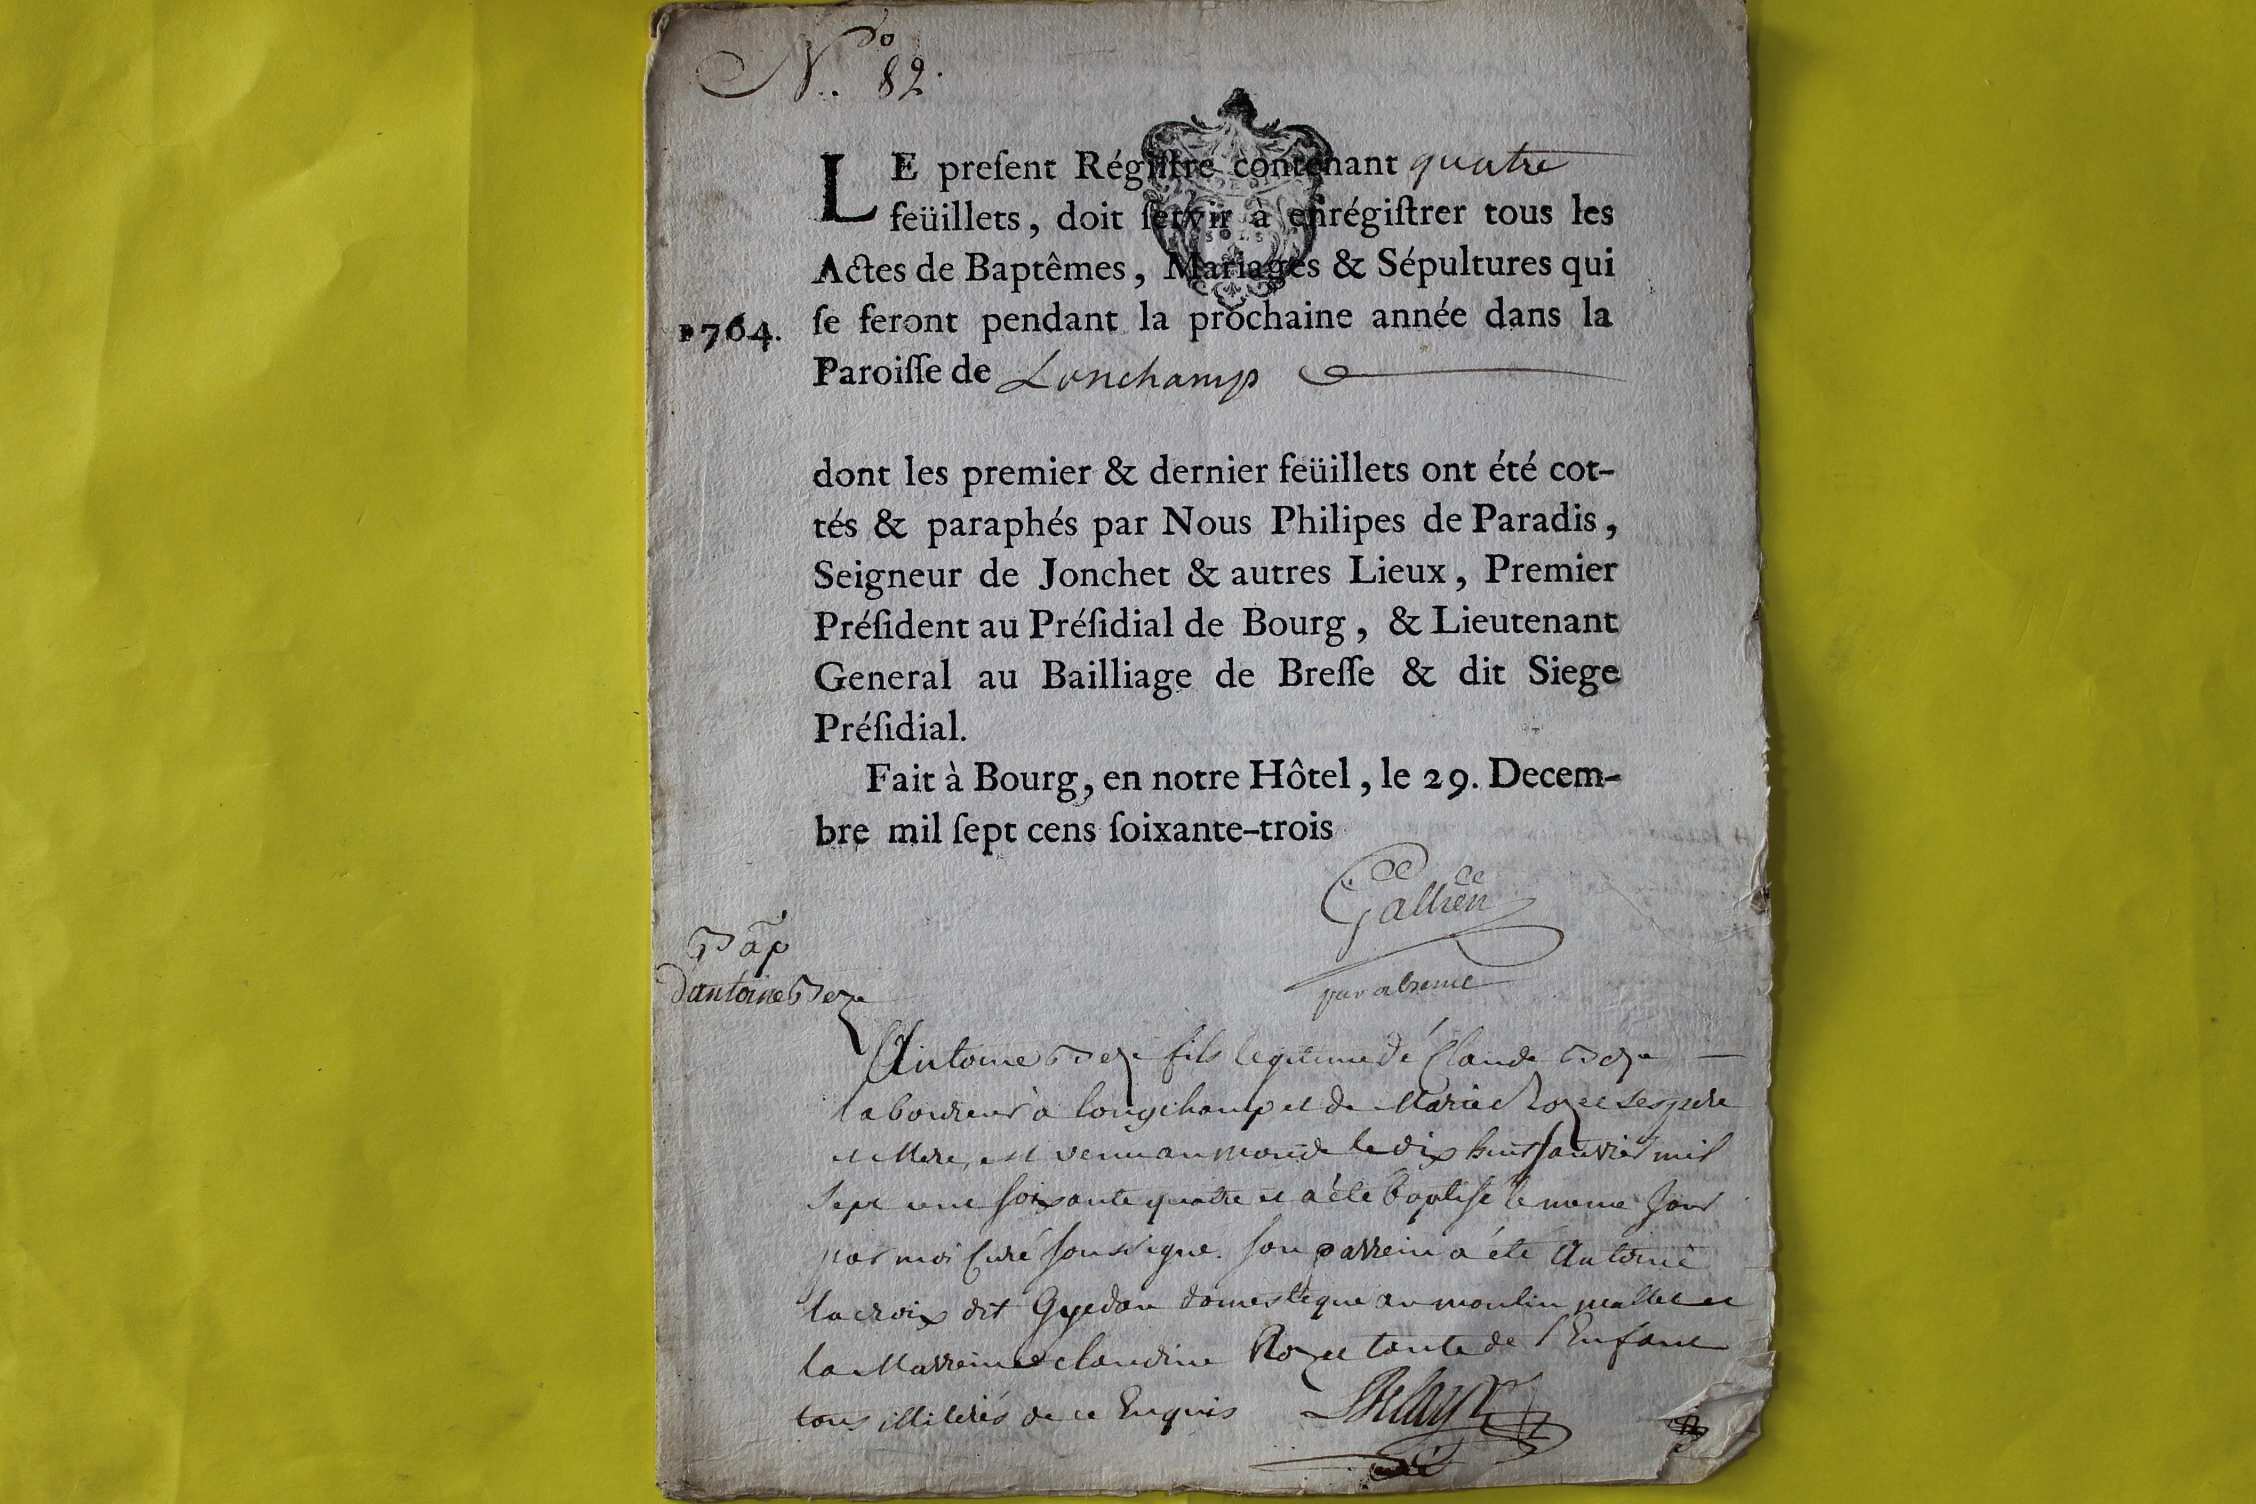 N.o 82.
LE preſent Régiſtre contenant quatre
feüillets, doit ſervir à enrégiſtrer tous les
Actes de Baptêmes, Mariages & Sépultures qui
1764. ſe feront pendant la prochaine année dans la
Paroiſſe de Lonchamp
dont les premier & dernier feüillets ont été cot-
tés & paraphés par Nous Philipes de Paradis,
Seigneur de Jonchet & autres Lieux, Premier
Préſident au Préſidial de Bourg, & Lieutenant
General au Bailliage de Breſſe & dit Siege
Préſidial.
Fait à Bourg, en notre Hôtel, le 29. Decem-
bre mil ſept cens ſoixante-trois
Gallien
par absence
Bap
d'antoine Beze
Antoine Beze fils legitime de Claude Beze
laboureur à longchamp et de Marie Rozet ses pere
et Mere, est venu au monde le dix huit Janvier mil
sept cent soixante quatre et a été baptisé le meme jour
par moi Curé soussigné. son parrein a été Antoine
lacroix dit Gyedon domestique au moulin mallet et
la Marreine claudine Rozet tante de l'Enfant
tous illiterés de ce Enquis
curé